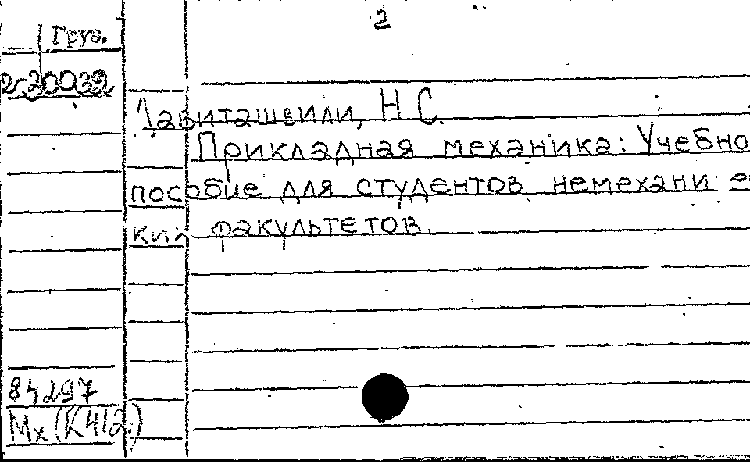 2
Груз.
Давиташвили, Н.С.
Прикладная механика: Учебно
пособие для студентов немехани
факультетов.
84297
Мх(К412)